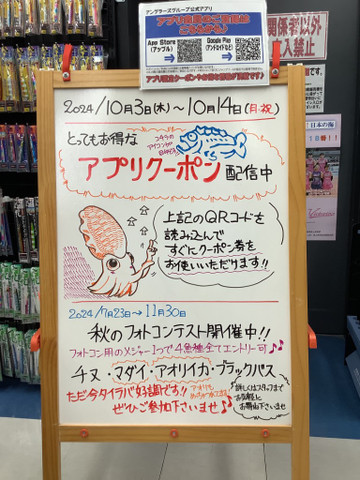 アングラーズグループ公式アプリ
App Store
(アップル)
Google Play
(アンドロイドなど)
関係者以外
立入禁止
日本の海
2024/10月3日(木)～10月14日(月・祝)
とってもお得な
コチラの
アイコンが
目印です♪
アプリクーポン配信中
上記のQRコードを
読み込んで
すぐにクーポン券を
お使いいただけます!!
2024/9月23日～11月30日
秋のフォトコンテスト開催中!!
フォトコン用のメジャー1つで4魚種全てエントリー可♪♪
チヌ・マダイ・アオリイカ・ブラックバス
ただ今タイラバ好調です!!
アオリも
ぜひご参加下さいませ♪
詳しくはスタッフまで
お気軽に
お尋ね下さいませ